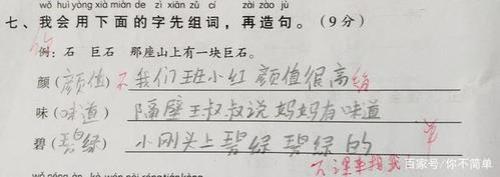 wǒ huì yòng xià miàn de zì xiān zǔ cí zài zào jù
七、我会用下面的字先组词，再造句。（9分）
例：石 巨石 那座山上有一块巨石。
颜（颜值）不 我们班小红颜值很高 给
味（味道）隔壁王叔叔说妈妈有味道
碧（碧绿）小刚头上碧绿碧绿的
下课来找我
百家号/你不简单